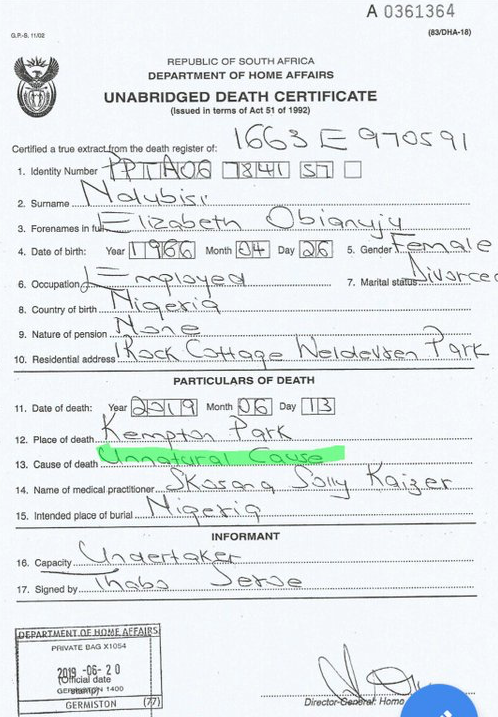 A 0361364
G.P.-S. 11/02
(83/DHA-18)
REPUBLIC OF SOUTH AFRICA
DEPARTMENT OF HOME AFFAIRS
UNABRIDGED DEATH CERTIFICATE
(Issued in terms of Act 51 of 1992)
Certified a true extract from the death register of: 1663 E 970591
1. Identity Number PPTA06 7841 57
2. Surname Ndubisi
3. Forenames in full Elizabeth Obianuju
4. Date of birth: Year 1966 Month 04 Day 26 5. Gender Female
6. Occupation Employed 7. Marital status Divorced
8. Country of birth Nigeria
9. Nature of pension None
10. Residential address 1 Rock Cottage Weldevren Park
PARTICULARS OF DEATH
11. Date of death: Year 2019 Month 06 Day 13
12. Place of death Kempton Park
13. Cause of death Unnatural Cause
14. Name of medical practitioner Skosana Solly Kaizer
15. Intended place of burial Nigeria
INFORMANT
16. Capacity Undertaker
17. Signed by Thabo
DEPARTMENT OF HOME AFFAIRS
PRIVATE BAG X1054
2019 -06- 20
(Official date stamp)
GERMISTON 1400
GERMISTON (77)
Director-General: Home